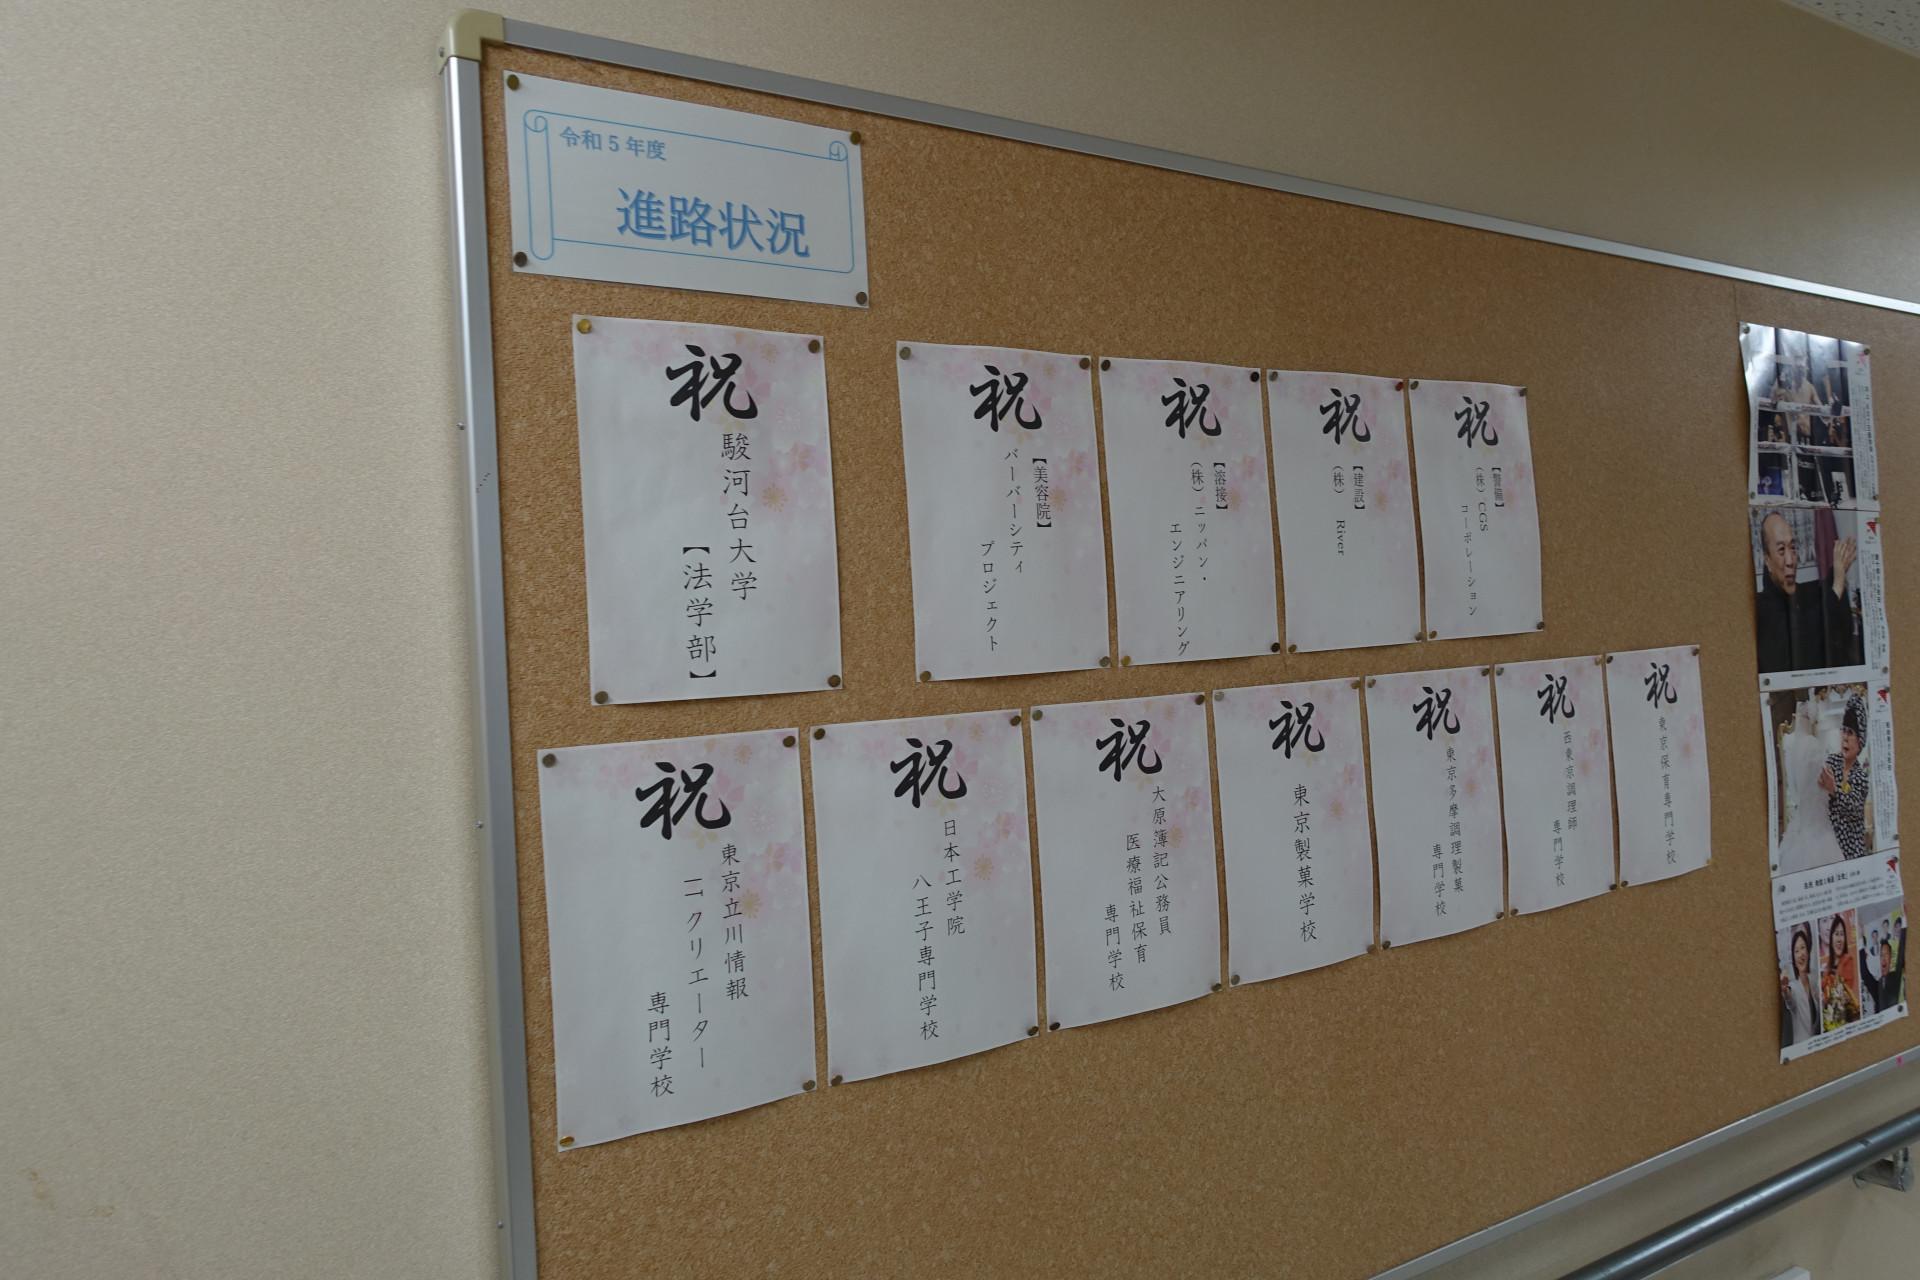 令和5年度
進路状況
祝
駿河台大学
【法学部】
祝
【美容院】
バーバーシティ
プロジェクト
祝
【溶接】
(株) ニッパン・
エンジニアリング
祝
【建設】
(株) River
祝
【警備】
(株) CGS
コーポレーション
祝
東京立川情報
ITクリエーター
専門学校
祝
日本工学院
八王子専門学校
祝
大原簿記公務員
医療福祉保育
専門学校
祝
東京製菓学校
祝
東京多摩調理製菓
専門学校
祝
西東京調理師
専門学校
祝
東京保育専門学校